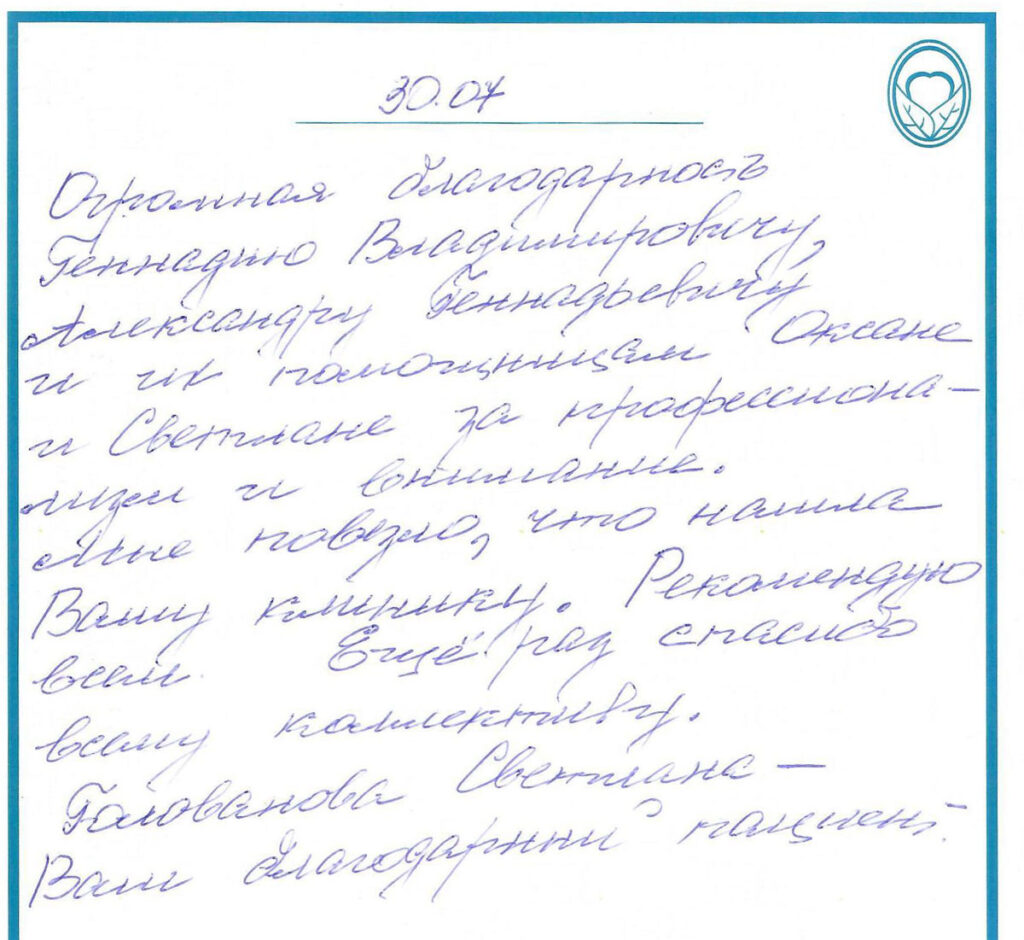 30.07
Огромная благодарность
Геннадию Владимировичу,
Александру Геннадьевичу
и их помощницам Оксане
и Светлане за профессиона-
лизм и внимание.
Мне повезло, что нашла
Вашу клинику. Рекомендую
всем. Ещё раз спасибо
всему коллективу.
Голованова Светлана -
Ваш благодарный пациент.